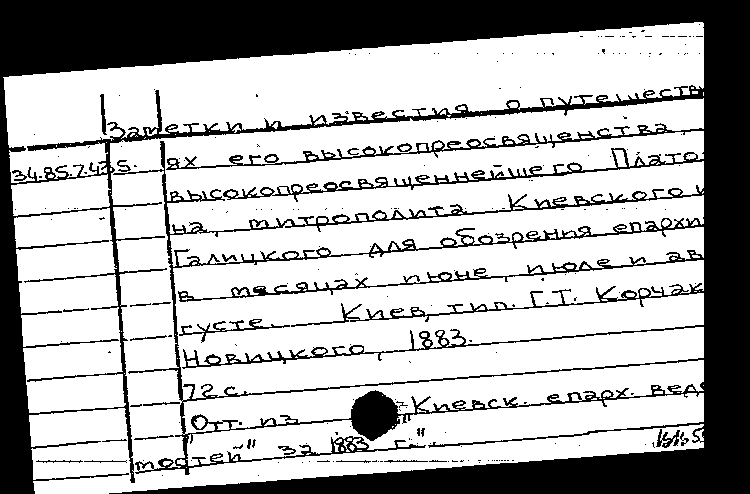 Заметки и известия о путешеств
34.85.7.435. ях его высокопреосвященства,
высокопреосвященнейшего Плато
на, митрополита Киевского и
Галицкого для обозрения епархии
в месяцах июне, июле и ав
густе. Киев, тип. Г.Т. Корчак
Новицкого, 1883.
72 с.
Отт. из "Киевск. епарх. ведо
мостей" за 1883 г.".